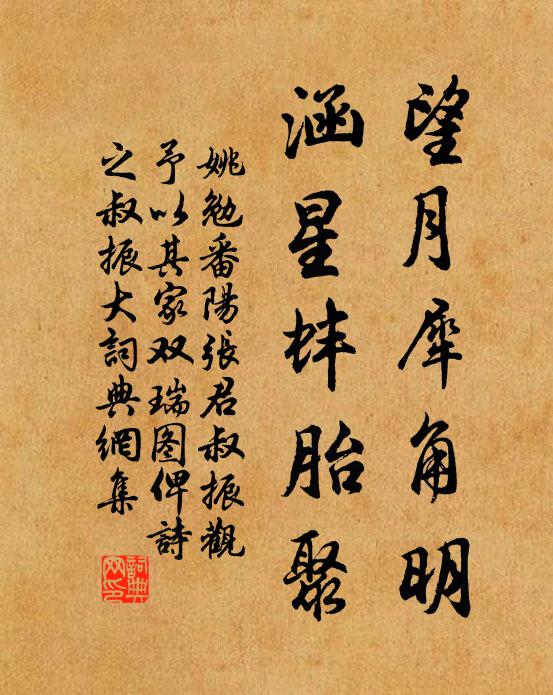 望月犀角明
涵星蚌胎聚
姚勉番陽张君叔振觀
予以其家双瑞图俾詩
之叔振大詞典網集
詞典网印